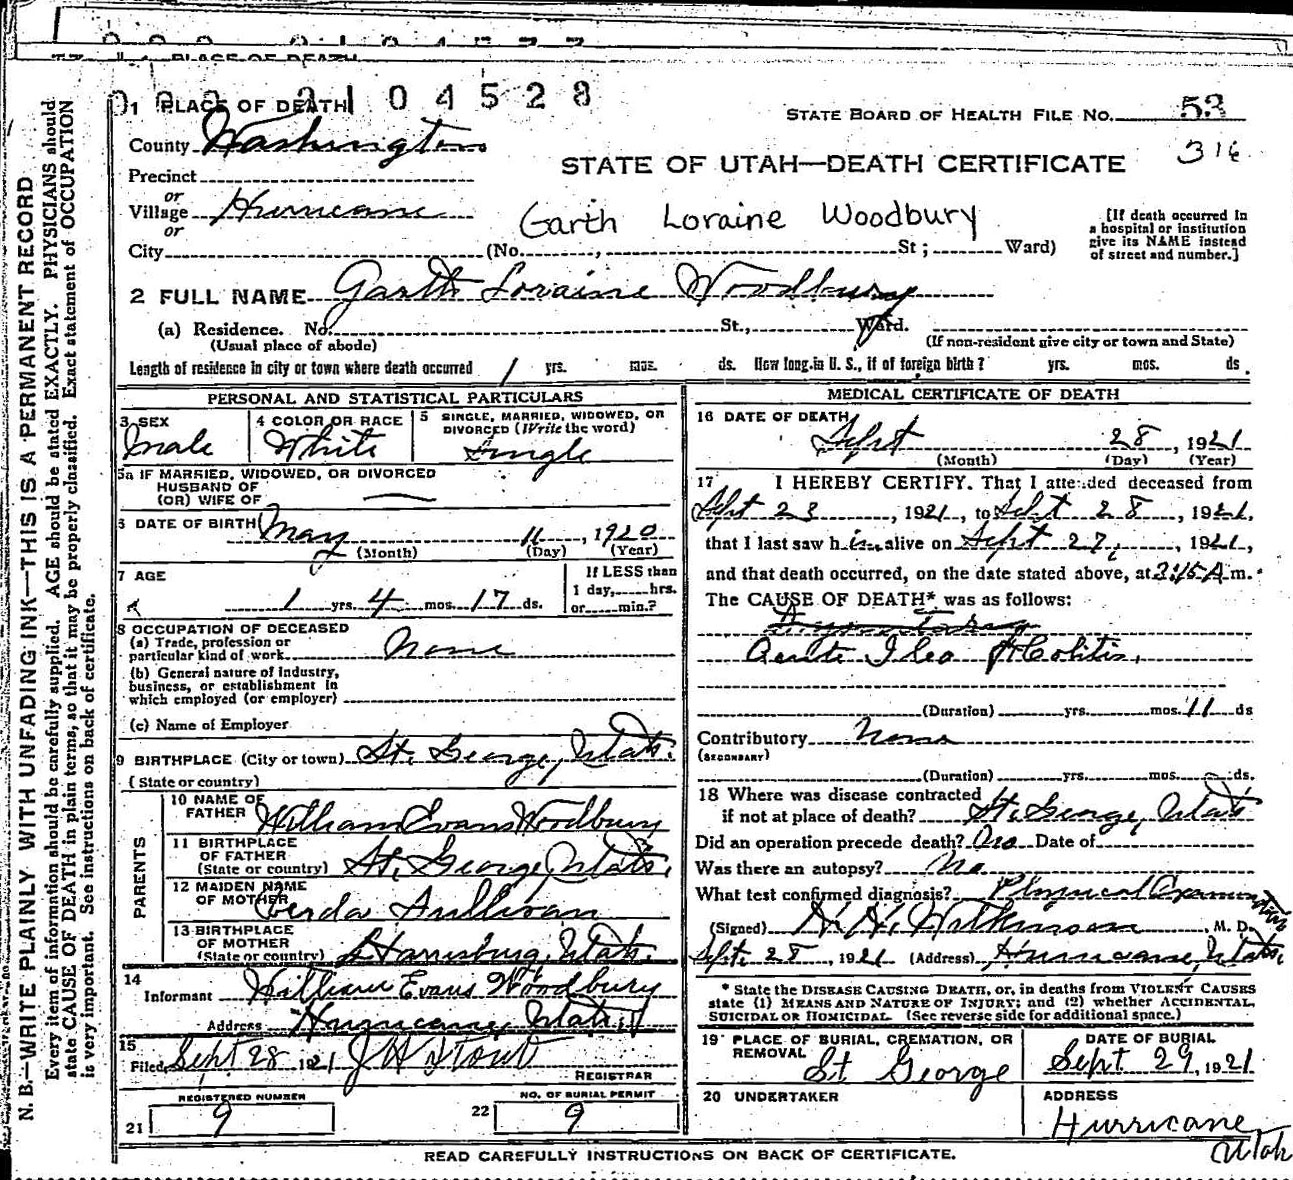 PLACE OF DEATH
1 PLACE OF DEATH 2104528
STATE BOARD OF HEALTH FILE No. 53
316
County Washington
STATE OF UTAH—DEATH CERTIFICATE
Precinct
or
Village Hurricane
or
Garth Loraine Woodbury
City (No. St; Ward)
[If death occurred in
a hospital or institution
give its NAME instead
of street and number.]
2 FULL NAME Garth Loraine Woodbury
(a) Residence. No. St., Ward.
(Usual place of abode)
(If non-resident give city or town and State)
Length of residence in city or town where death occurred 1 yrs. mos. ds. How long in U. S., if of foreign birth? yrs. mos. ds.
PERSONAL AND STATISTICAL PARTICULARS
3 SEX
Male
4 COLOR OR RACE
White
5 SINGLE, MARRIED, WIDOWED, OR
DIVORCED (Write the word)
Single
5a IF MARRIED, WIDOWED, OR DIVORCED
HUSBAND OF
(OR) WIFE OF —
6 DATE OF BIRTH May 11, 1920
(Month) (Day) (Year)
7 AGE
1 yrs. 4 mos. 17 ds.
If LESS than
1 day, hrs.
or min.?
8 OCCUPATION OF DECEASED
(a) Trade, profession or
particular kind of work None
(b) General nature of industry,
business, or establishment in
which employed (or employer)
(c) Name of Employer
9 BIRTHPLACE (City or town) St. George, Utah.
(State or country)
PARENTS
10 NAME OF
FATHER William Evans Woodbury
11 BIRTHPLACE
OF FATHER
(State or country) St. George, Utah.
12 MAIDEN NAME
OF MOTHER Gerda Sullivan
13 BIRTHPLACE
OF MOTHER
(State or country) Harrisburg, Utah.
14
Informant William Evans Woodbury
Address Hurricane, Utah.
15
Filed Sept 28 1921
REGISTRAR
REGISTERED NUMBER
21 9
NO. OF BURIAL PERMIT
22 9
MEDICAL CERTIFICATE OF DEATH
16 DATE OF DEATH
Sept 28, 1921
(Month) (Day) (Year)
17 I HEREBY CERTIFY. That I attended deceased from
Sept 23, 1921, to Sept 28, 1921,
that I last saw him alive on Sept 27, 1921,
and that death occurred, on the date stated above, at 3:45 A m.
The CAUSE OF DEATH* was as follows:
Acute Ileo Colitis,
(Duration) yrs. mos. 11 ds
Contributory None
(SECONDARY)
(Duration) yrs. mos. ds.
18 Where was disease contracted
if not at place of death? St. George, Utah
Did an operation precede death? No Date of
Was there an autopsy? No
What test confirmed diagnosis? Physical Examination
(Signed) Wilkinson, M. D.
Sept. 28, 1921 (Address) Hurricane, Utah.
* State the DISEASE CAUSING DEATH, or, in deaths from VIOLENT CAUSES
state (1) MEANS AND NATURE OF INJURY; and (2) whether ACCIDENTAL,
SUICIDAL OR HOMICIDAL. (See reverse side for additional space.)
19 PLACE OF BURIAL, CREMATION, OR
REMOVAL
St George
DATE OF BURIAL
Sept 29, 1921
20 UNDERTAKER
ADDRESS
Hurricane,
Utah
READ CAREFULLY INSTRUCTIONS ON BACK OF CERTIFICATE.
N. B.—WRITE PLAINLY WITH UNFADING INK—THIS IS A PERMANENT RECORD
Every item of information should be carefully supplied. AGE should be stated EXACTLY. PHYSICIANS should
state CAUSE OF DEATH in plain terms, so that it may be properly classified. Exact statement of OCCUPATION
is very important. See instructions on back of certificate.